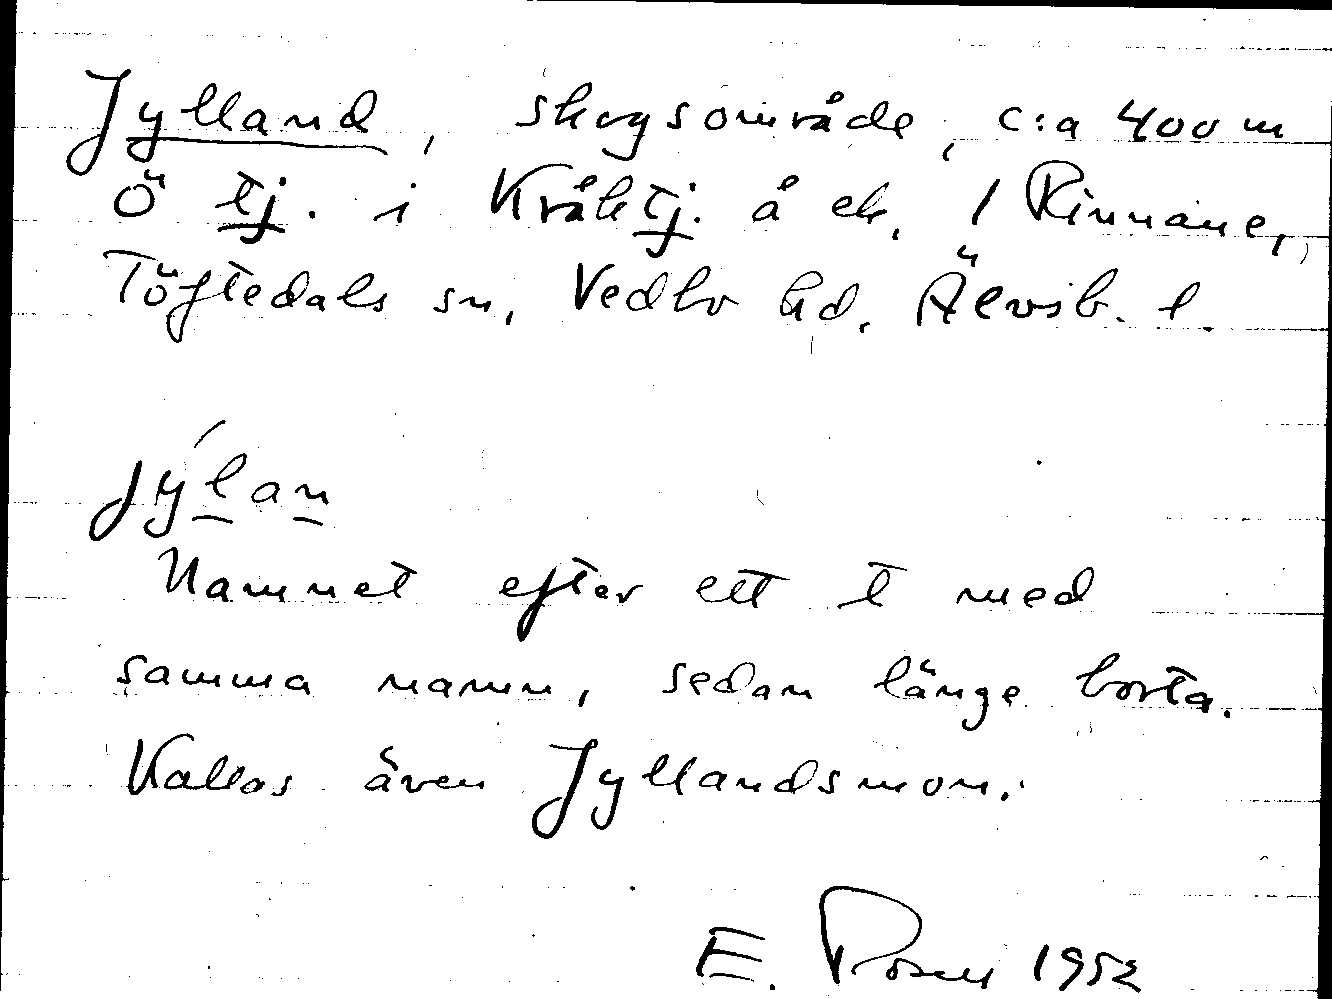 Jylland, skogsområde, c:a 400 m
Ö tj. i Kråktj. å ek. 1 Rinnane,
Töftedals sn, Vedbo hd, Älvsb. l.
Jýlan
Namnet efter ett t med
samma namn, sedan länge borta.
Kallas även Jyllandsmon.
E. Rosen 1952